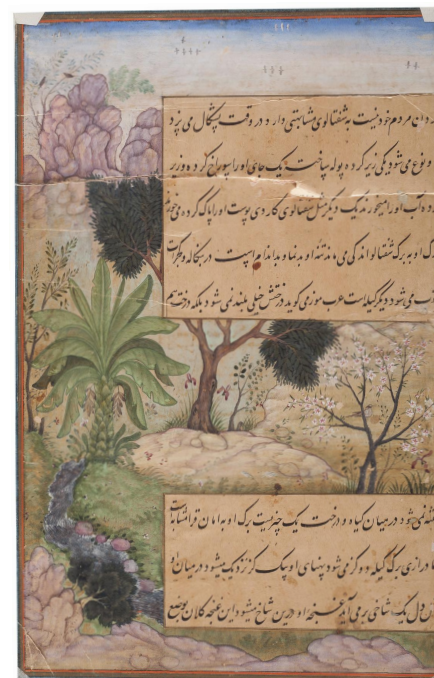 مردم خود نیست به شفتالوی مشابهتی دارد در وقت پشکال می پزد
و نوع می شود یکی زیر کرده پوله ساخته یک جای او را سوراخ کرده
آب او را میخورند یک دیگر مثل شفتالوی کاردی پوست او را پاک کرده می خورند
برگ او به برگ شفتالو اندکی می ماند تنهٔ او بدنما و بداندام است در بنگاله و گجرات
می شود دیگر کیله است عرب موز می گوید درختش خیلی بلند نمی شود بلکه درخت هم
نمی شود در میان گیاه و درخت یک چیزیست برگ او به امان قرا مشابهت
درازی برگ کیله دو گز می شود پهنای او یک گز نزدیک میشود در میان او
دل یک شاخی بر می آید غنچه او درین شاخ میشود این غنچه کلان بوضع